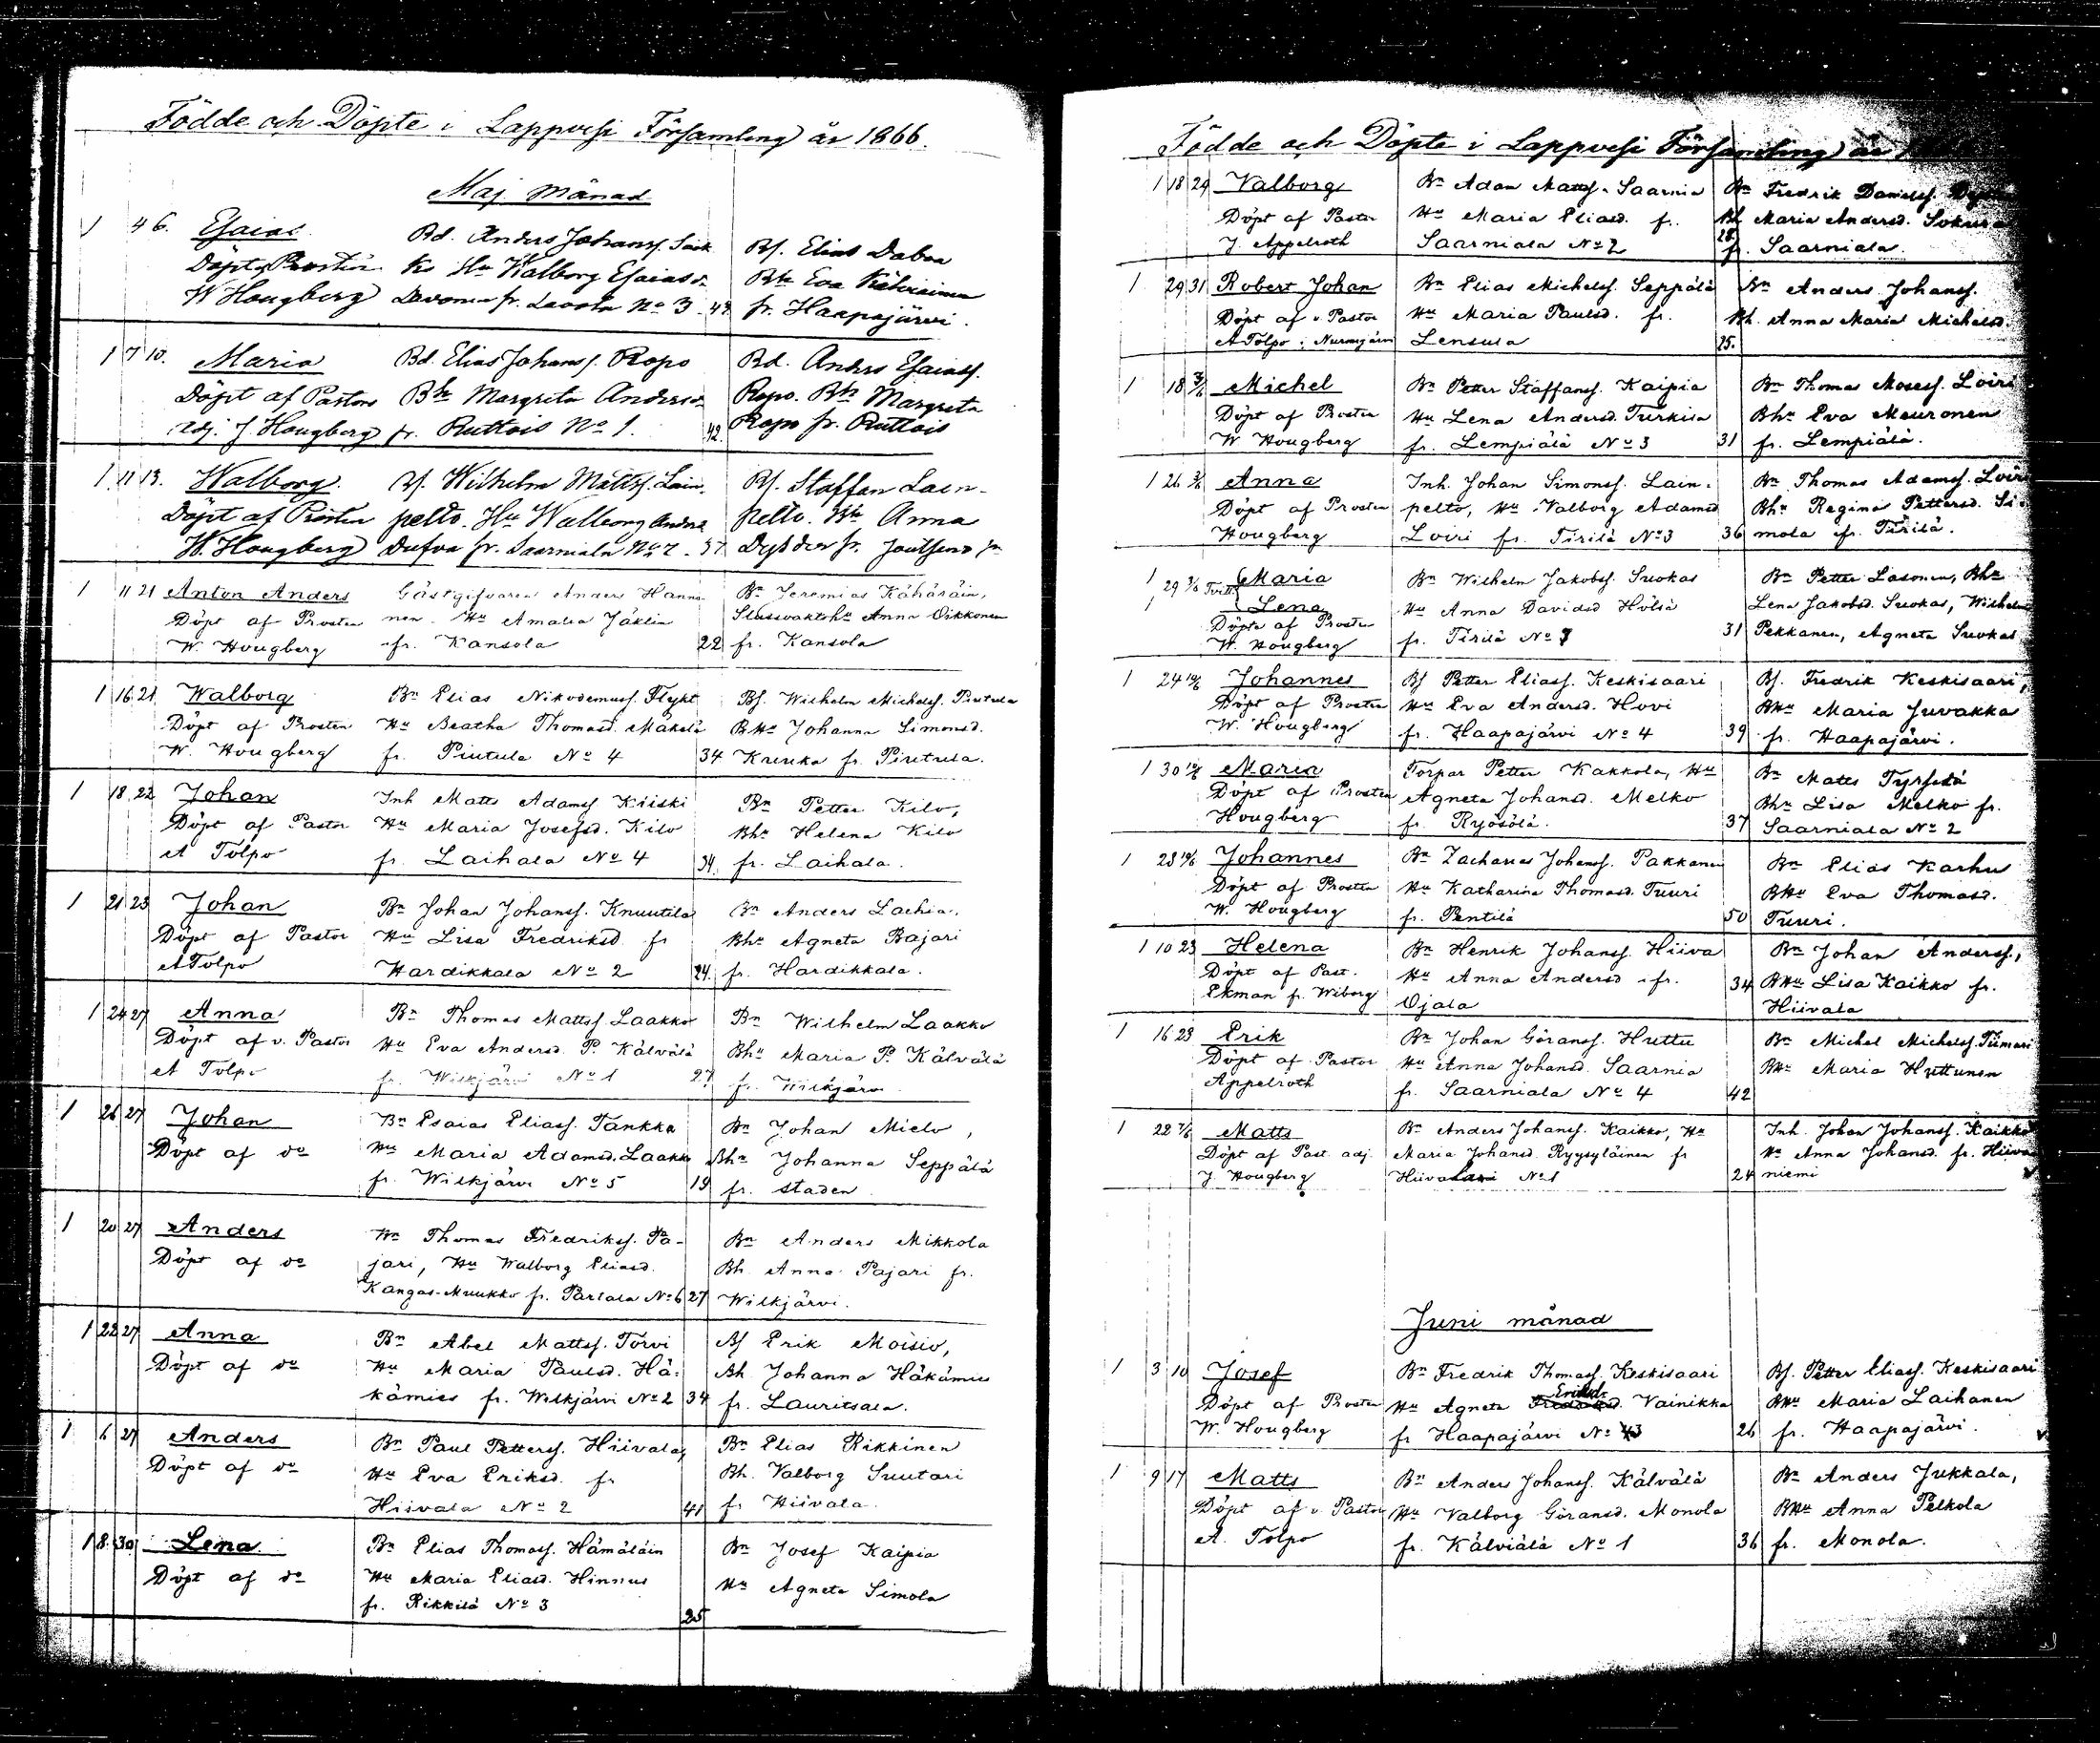 Födde och Döpte i Lappvesi Församling år 1866.
Maj månad
1 4 6. Esaias Bd. Anders Johanss. Bs. Elias Daboa
Döpt af Prosten Hu Walborg Esaiasd. Bhu Eva
W Hougberg fr. No 3 42 fr. Haapajärvi.
1 7 10. Maria Bd. Elias Johanss. Ropo Bd. Anders Esaiass.
Döpt af Pastors Bhu Margreta Andersd. Ropo. Bhu Margreta
adj. J Hougberg fr. Ruttois No 1. 42. Ropo fr. Ruttois
1 11 13. Walborg Bs. Wilhelm Mattss. Lain- Bs. Staffan Lain-
Döpt af Prosten pelto. Hu Walborg Andersd. pelto. Bhu Anna
W. Hougberg Dufva fr. Saarniala No 2. 37 fr. Joutseno
1 11 21 Anton Anders Gästgifvaren Anders Hanno- Bn Jeremias Kähäräin,
Döpt af Prosten nen. Hu Amalia Jäklin Slussvaktshu Anna Oikkonen
W. Hougberg fr. Kansola 22 fr. Kansola
1 16 21 Walborg Bn Elias Nikodemuss. Flykt Bs. Wilhelm Michelss. Piutula
Döpt af Prosten Hu Beatha Thomasd. Mäkelä BHu Johanna Simonsd.
W. Hougberg fr. Piutula No 4 34 Kruuka fr. Piutula.
1 18 22 Johan Inh Matts Adamss Kiiski Bn Petter Kilo,
Döpt af Pastor Hu Maria Josefsd. Kilo Bhu Helena Kilo
A Tolpo fr. Laihala No 4 34. fr. Laihala.
1 21 23 Johan Bn Johan Johanss. Knuutila Bn Anders Lachia.
Döpt af Pastor Hu Lisa Fredriksd. fr Bhu Agneta Bajari
A Tolpo Hardikkala No 2 24. fr. Hardikkala.
1 24 27 Anna Bn Thomas Mattss Laakko Bn Wilhelm Laakko
Döpt af v. Pastor Hu Eva Andersd. P. Kälvälä Bhu Maria P. Kälvälä
A Tolpo fr. Wilkjärvi No 1 27 fr. Wilkjärvi
1 26 27 Johan Bn Esaias Eliass. Tankka Bn Johan Mielo,
Döpt af do Hu Maria Adamsd. Laakko Bhu Johanna Seppälä
fr. Wilkjärvi No 5 19 fr. staden
1 20 27 Anders Bn Thomas Fredrikss. Pa- Bn Anders Mikkola
Döpt af do jari, Hu Walborg Eliasd. Bh. Anna Pajari fr.
Kangas-Muukko fr. Partala No 6 27 Wilkjärvi.
1 22 27 Anna Bn Abel Mattss. Torvi Bs Erik Moisio,
Döpt af do Hu Maria Paulsd. Hä- Bh Johanna Häkämies
kämies fr. Wilkjärvi No 2 34 fr. Lauritsala.
1 6 27 Anders Bn Paul Petterss. Hiivala, Bn Elias Rikkinen
Döpt af do Hu Eva Eriksd. fr Bh. Valborg Suutari
Hiivala No 2 41 fr Hiivala.
1 8 30 Lena Bn Elias Thomass. Hämäläin Bn Josef Kaipia
Döpt af do Hu Maria Eliasd. Hinnus Hu Agneta Simola
fr. Rikkilä No 3 25
Födde och Döpte i Lappvesi Församling år
1 18 24 Valborg Bn Adam Mattss. Saarnia Bn Fredrik Danielss.
Döpt af Pastor Hu Maria Eliasd. fr. Bh Maria Andersd. Sokura
J. Appelroth Saarniala No 2 28. fr. Saarniala.
1 29 31 Robert Johan Bn Elias Michelss. Seppälä Bn Anders Johanss.
Döpt af v. Pastor Hu Maria Paulsd. fr. Bh. Anna Maria Michelsd.
A Tolpo i Nurmijärvi Lensula 25.
1 18 3/6 Michel Bn Petter Staffanss. Kaipia Bn Thomas Mosess. Loiri
Döpt af Prosten Hu Lena Andersd. Turkisa Bhu Eva Meuronen
W Hougberg fr. Lempiälä No 3 31 fr. Lempiälä.
1 26 3/6 Anna Inh. Johan Simonss. Lain- Bn Thomas Adamss. Loiri
Döpt af Prosten pelto, Hu Valborg Adamsd Bhu Regina Pettersd. Si-
Hougberg Loiri fr. Tirilä No 3 36 mola fr. Tirilä.
1 29 3/6 Maria Bn Wilhelm Jakobss. Suokas Bn Petter Lasonen, Bhu
1 Lena Hu Anna Davidsd Hölsä Lena Jakobsd. Suokas, Wilhelm
Döpte af Prosten fr. Tirilä No 7 31 Pekkanen, Agneta Suokas
W. Hougberg
1 24 10/6 Johannes Bs Petter Eliass. Keskisaari Bs. Fredrik Keskisaari,
Döpt af Prosten Hu Eva Andersd. Hovi BHu Maria Juvakka
W. Hougberg fr. Haapajärvi No 4 39 fr. Haapajärvi.
1 30 10/6 Maria Torpar Petter Kakkola, Hu Bn Matts Tyrsilä
Döpt af Prosten Agneta Johansd. Melko Bhu Lisa Melko fr.
Hougberg fr. Ryösölä. 37 Saarniala No 2
1 23 10/6 Johannes Bn Zacharias Johanss. Pakkanen Bn Elias Karhu
Döpt af Prosten Hu Katharina Thomasd. Tuuri BHu Eva Thomasd.
W. Hougberg fr. Pentilä 50 Tuuri.
1 10 23 Helena Bn Henrik Johanss. Hiiva Bn Johan Anderss.,
Döpt af Past. Hu Anna Andersd fr. 34 BHu Lisa Kaikko fr.
Ekman fr. Wiborg Ojala Hiivala
1 16 23 Erik Bn Johan Göranss. Huttu Bn Michel Michelss. Tiimari
Döpt af Pastor Hu Anna Johansd. Saarnia BHu Maria Huttunen
Appelroth fr. Saarniala No 4 42
1 22 7/6 Matts Bn Anders Johanss. Kaikko, Hu Inh. Johan Johanss. Kaikko
Döpt af Past. adj. Maria Johansd. Ryysyläinen fr Hu Anna Johansd. fr. Hiiva-
J Hougberg No 1 24 niemi
Juni månad
1 3 10 Josef Bn Fredrik Thomass. Keskisaari Bs. Petter Eliass. Keskisaari
Döpt af Prosten Hu Agneta Eriksd. Vainikka BHu Maria Laihanen
W. Hougberg fr Haapajärvi No 3 26 fr. Haapajärvi.
1 9 17 Matts Bn Anders Johanss. Kälvälä Bn Anders Jukkala,
Döpt af v. Pastor Hu Valborg Göransd. Monola BHu Anna Pelkola
A. Tolpo fr. Kälviälä No 1 36 fr. Monola.